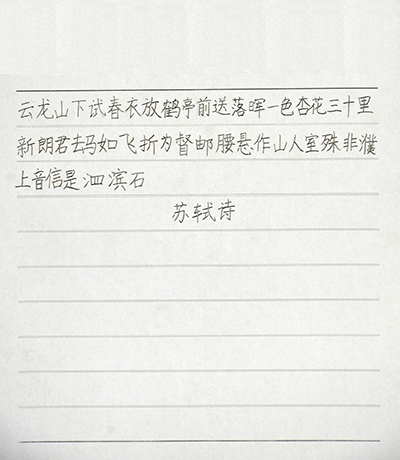 云龙山下试春衣放鹤亭前送落晖一色杏花三十里
新朗君去马如飞折为督邮腰悬作山人室殊非濮
上音信是泗滨石
苏轼诗